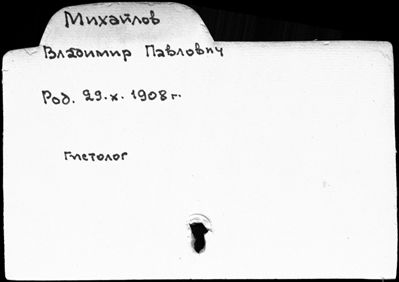 Михайлов
Владимир Павлович
Род. 29.x.1908 г.
Гистолог